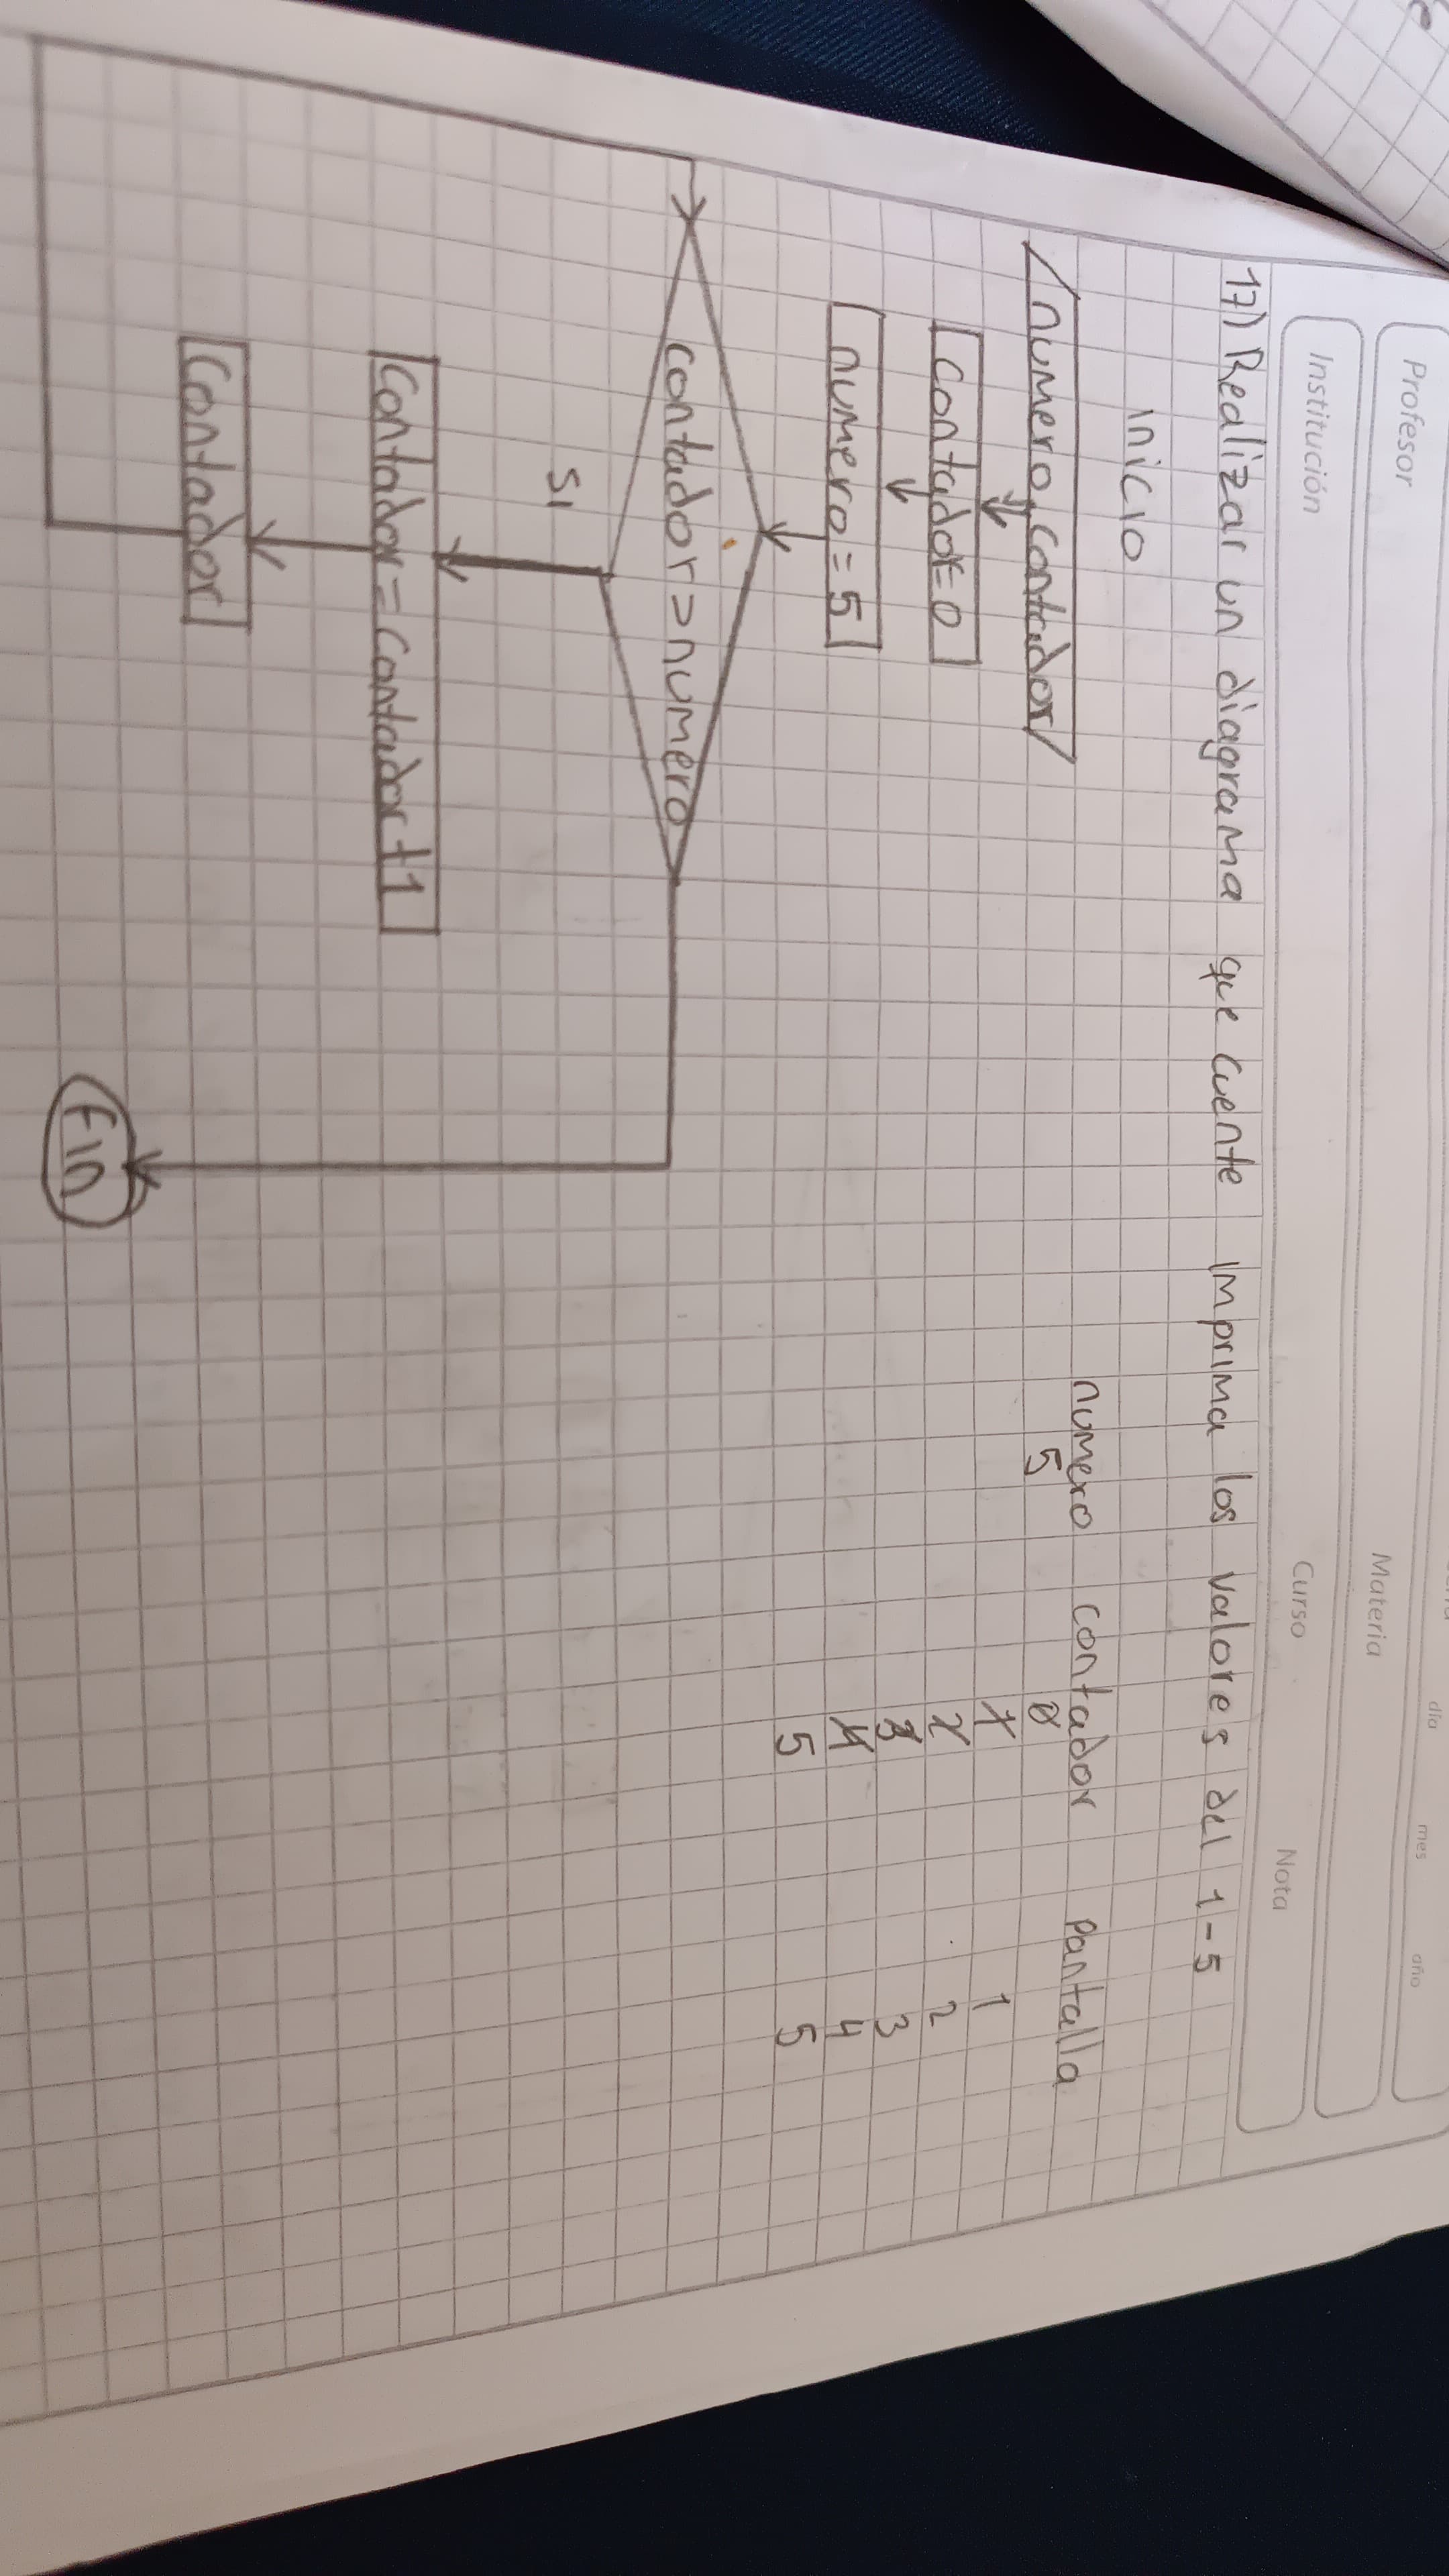 Profesor
Materia
día mes año
Institución
Curso
Nota
17) Realizar un diagrama que cuente imprima los valores del 1-5
inicio
numero, contador
contador=0
numero = 5
contador > numero
SI
Contador = Contador+1
Contador
Fin
numero contador pantalla
5 0
1 1
2 2
3 3
4 4
5 5